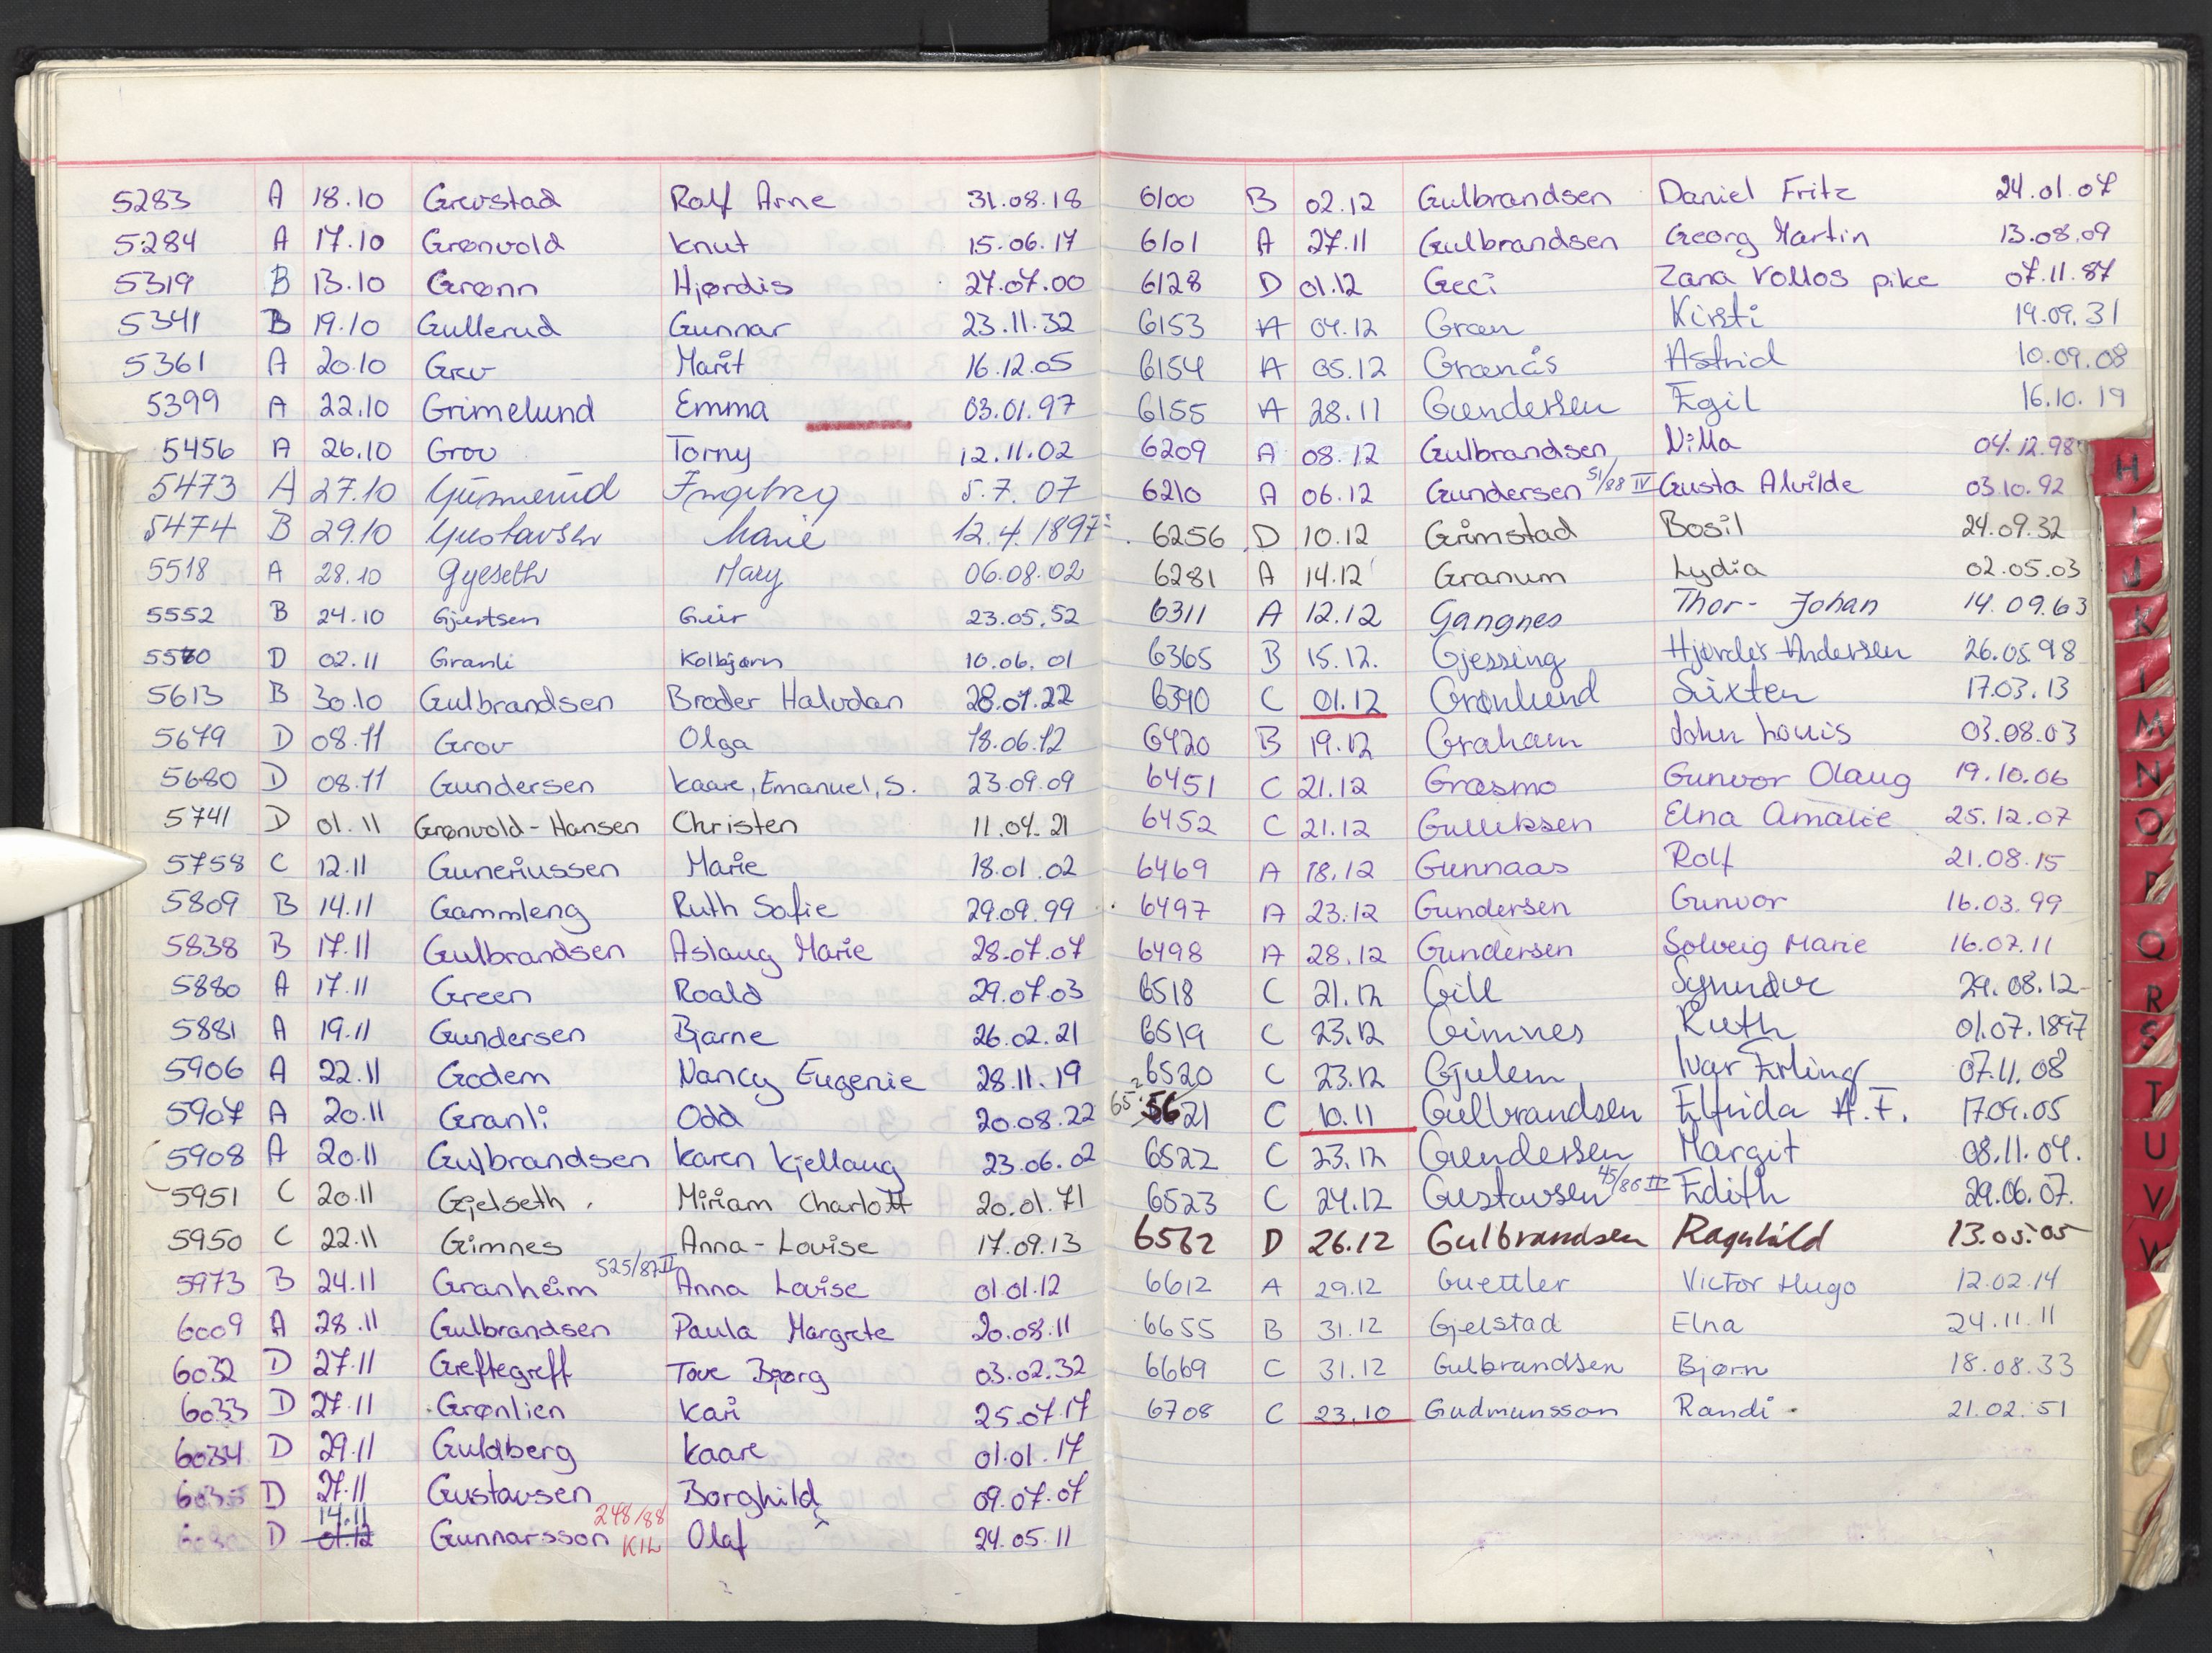 5283 A 18.10 Grevstad Rolf Arne 31.08.18
5284 A 17.10 Grønvold Knut 15.06.17
5319 B 13.10 Grønn Hjørdis 27.07.00
5341 B 19.10 Gullerud Gunnar 23.11.32
5361 A 20.10 Grev Marit 16.12.05
5399 A 22.10 Grimelund Emma 03.01.97
5456 A 26.10 Grov Torny 12.11.02
5473 A 27.10 Ingebreg 5.7.07
5474 B 29.10 Gustavsen Marie 12.4.1897
5518 A 28.10 Gyeseth Mary 06.08.02
5552 B 24.10 Gjertsen Geir 23.05.52
5570 D 02.11 Granli Kolbjørn 10.06.01
5613 B 30.10 Gulbrandsen Broder Halvdan 28.07.22
5679 D 08.11 Grov Olga 18.06.12
5680 D 08.11 Gundersen Kaare, Emanuel, S. 23.09.09
5741 D 01.11 Grønvold-Hansen Christen 11.04.21
5758 C 12.11 Guneriussen Marie 18.01.02
5809 B 14.11 Gammleng Ruth Sofie 29.09.99
5838 B 17.11 Gulbrandsen Aslaug Marie 28.07.07
5880 A 17.11 Green Roald 29.07.03
5881 A 19.11 Gundersen Bjarne 26.02.21
5906 A 22.11 Godem Nancy Eugenie 28.11.19
5907 A 20.11 Granli Odd 20.08.22
5908 A 20.11 Gulbrandsen Karen Kjellaug 23.06.02
5951 C 20.11 Gjelseth Miriam Charlott 20.01.71
5950 C 22.11 Gimnes Anna-Lovise 17.09.13
5973 B 24.11 Granheim 525/87 II Anna Lovise 01.01.12
6009 A 28.11 Gulbrandsen Paula Margrete 20.08.11
6032 D 27.11 Greftegreff Tove Bjørg 03.02.32
6033 D 27.11 Grønlien Kari 25.07.17
6034 D 29.11 Guldberg Kaare 01.01.17
6035 D 27.11 Gustavsen Borghild 09.07.07
D 14.11 01.12 Gunnarsson 248/88 K1L Olaf 24.05.11
6100 B 02.12 Gulbrandsen Daniel Fritz 24.01.07
6101 A 27.11 Gulbrandsen Georg Martin 13.08.09
6128 D 01.12 Geci Zana Vollos pike 07.11.87
6153 A 04.12 Gran Kirsti 19.09.31
6154 A 05.12 Granås Astrid 10.09.08
6155 A 28.11 Gundersen Egil 16.10.19
6209 A 08.12 Gulbrandsen Nilla 04.12.98
6210 A 06.12 Gundersen 51/88 IV Gusta Alvilde 03.10.92
6256 D 10.12 Grimstad Bosil 24.09.32
6281 A 14.12 Granum Lydia 02.05.03
6311 A 12.12 Gangnes Thor- Johan 14.09.63
6365 B 15.12. Gjessing Hjørdis Andersen 26.05.98
6390 C 01.12 Grønlund Sixten 17.03.13
6420 B 19.12 Graham John Louis 03.08.03
6451 C 21.12 Græsmo Gunvor Olaug 19.10.06
6452 C 21.12 Gulliksen Elna Amalie 25.12.07
6469 A 18.12 Gunnaas Rolf 21.08.15
6497 A 23.12 Gundersen Gunvor 16.03.99
6498 A 28.12 Gundersen Solveig Marie 16.07.11
6518 C 21.12 Gill 29.08.12
6519 C 23.12 Gimnes Ruth 01.07.1897
6520 C 23.12 Gjulem Ivar Erling 07.11.08
65 5621 C 10.11 Gulbrandsen Elfrida A.F. 17.09.05
6522 C 23.12 Gundersen Margit 08.11.04.
6523 C 24.12 Gustavsen 45/86 III Edith 29.06.07.
6562 D 26.12 Gulbrandsen Ragnhild 13.05.05
6612 A 29.12 Guettler Victor Hugo 12.02.14
6655 B 31.12 Gjelstad Elna 24.11.11
6669 C 31.12 Gulbrandsen Bjørn 18.08.33
6708 C 23.10 Gudmunsson Randi 21.02.51
H
I
J
K
L
M
N
O
P
Q
R
S
T
U
V
W